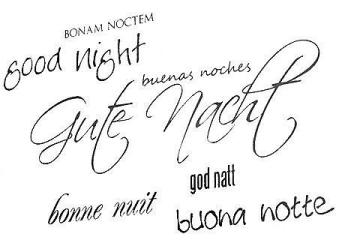 BONAM NOCTEM
good night
buenas noches
Gute Nacht
god natt
bonne nuit
buona notte